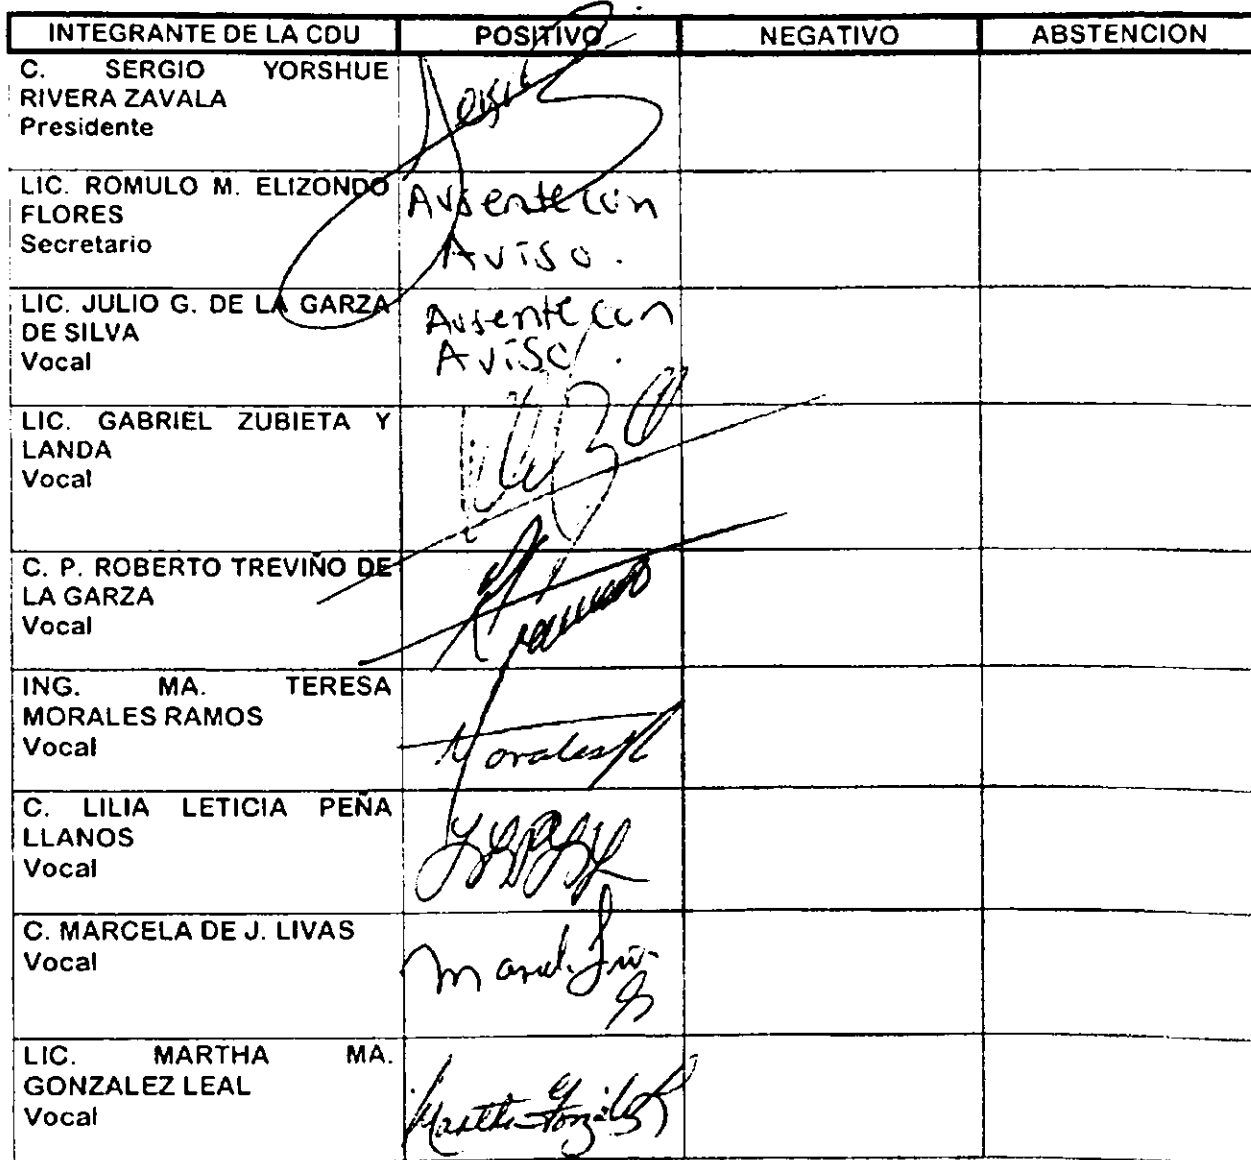 INTEGRANTE DE LA CDU POSITIVO NEGATIVO ABSTENCION
C. SERGIO YORSHUE
RIVERA ZAVALA
Presidente
LIC. ROMULO M. ELIZONDO
FLORES
Secretario
Ausente con
Aviso.
LIC. JULIO G. DE LA GARZA
DE SILVA
Vocal
Ausente con
Aviso.
LIC. GABRIEL ZUBIETA Y
LANDA
Vocal
C. P. ROBERTO TREVIÑO DE
LA GARZA
Vocal
ING. MA. TERESA
MORALES RAMOS
Vocal
Morales R
C. LILIA LETICIA PEÑA
LLANOS
Vocal
C. MARCELA DE J. LIVAS
Vocal
LIC. MARTHA MA.
GONZALEZ LEAL
Vocal
Martha González